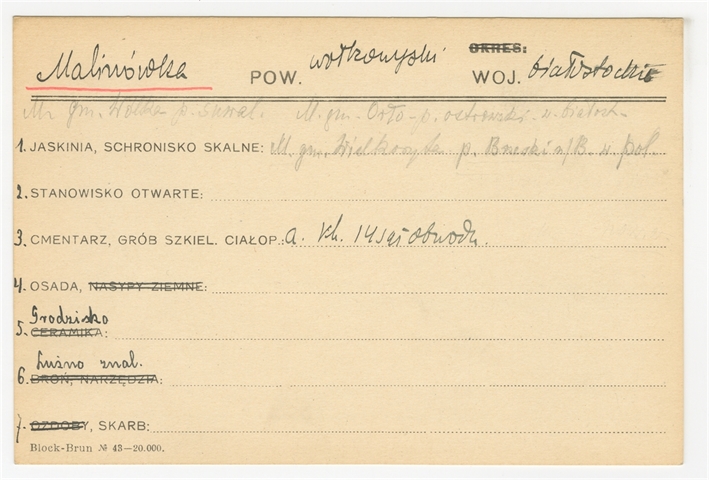 OKRES:
Malinówka POW. wołkowyski WOJ. białostockie
M. gm. Wólka p. suwal. M. gm. Orlo p. ostrowski w. białost.
1. JASKINIA, SCHRONISKO SKALNE: M. gm. Wielkoryta p. Brzeski n/B. w. pol.
2. STANOWISKO OTWARTE:
3. CMENTARZ, GRÓB SZKIEL. CIAŁOP.: a. kh. 14
4. OSADA, NASYPY ZIEMNE:
Grodzisko
5. CERAMIKA:
Luźno znal.
6. BROŃ, NARZĘDZIA:
7. OZDOBY, SKARB:
Block-Brun № 43—20.000.